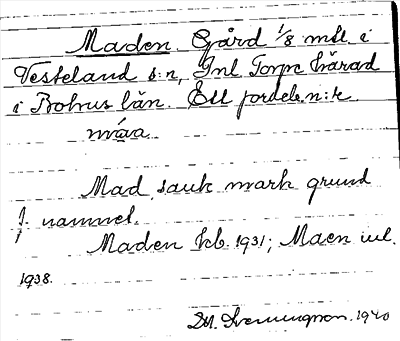 Maden. Gård 1/8 mtl i
Vesteland s:n, Inl Torpe härad
i Bohus län. Ett fordeb. n:r
måa
Mad, sank mark grund
f. namnet.
Maden kb. 1931; Maen
1938.
1940